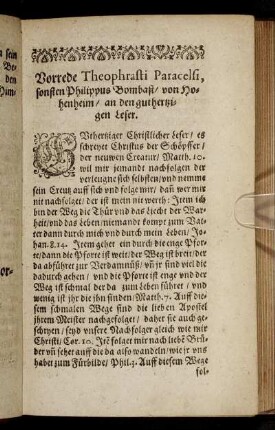 Vorrede Theophrasti Paracelsi,
sonsten Philippus Bombast/ von Ho-
henheim/ an den guthertzi-
gen Leser.
GUthertziger Christlicher Leser/ es
schreyet Christus der Schöpffer/
der neuwen Creatur/ Matth. 10.
wil mir jemandt nachfolgen der
verleugne sich selbsten/ vnd nemme
sein Creutz auff sich vnd folge mir/ dañ wer mir
nit nachfolget/ der ist mein nit werth: Item ich
bin der Weg die Thür vnd das Liecht der War-
heit/ vnd das Leben niemandt kompt zum Vat-
ter dann durch mich vnd durch mein Leben/ Jo-
han. 8. 14. Item gehet ein durch die enge Pfor-
te/ dann die Pforte ist weit/ der Weg ist breit/ der
da abführet zur Verdamnuß/ vñ jr sind viel die
dadurch gehen/ vnd die Pforte ist enge vnd der
Weg ist schmal der da zum Leben führet/ vnd
wenig ist jhr die jhn finden/ Matth. 7. Auff die-
sem schmalen Wege sind die lieben Apostel
jhrem Meister nachgefolget/ daher sie auch ge-
schryen/ seyd vnsere Nachfolger gleich wie mir
Christi/ Cor. 10. Itē folget mir nach liebē Brü-
der vñ sehet auff die da also wandeln/ wie jr vns
habet zum Fürbilde/ Phil. 3. Auff diesem Wege
fol-
sein
den
or-